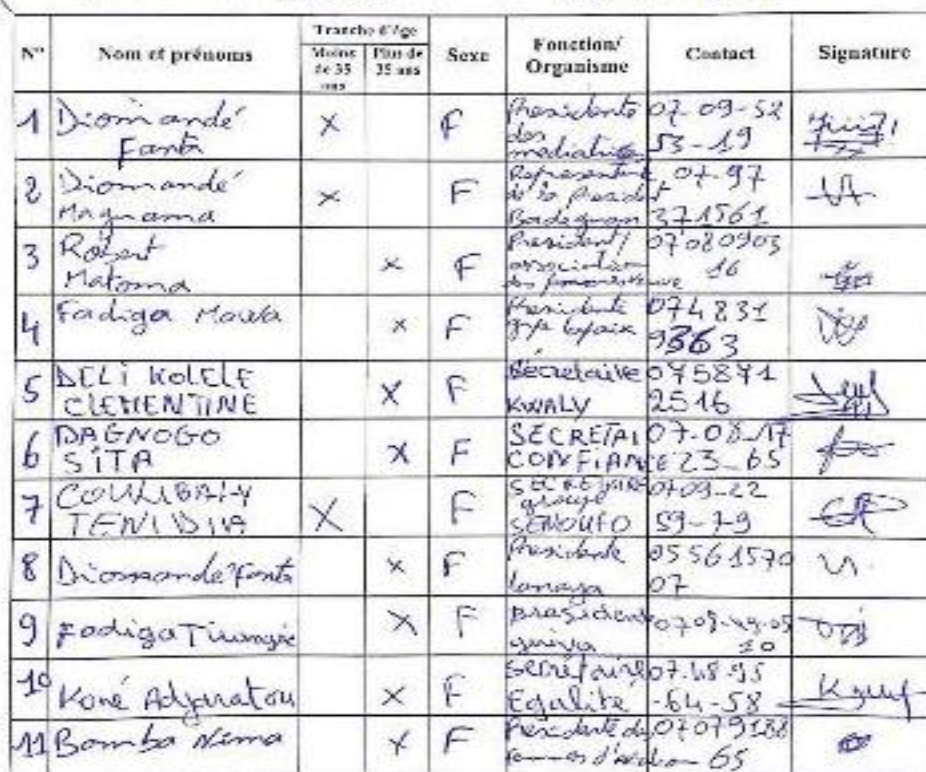 N° Nom et prénoms Tranche d'âge Moins de 35 ans Plus de 35 ans Sexe Fonction/ Organisme Contact Signature
1 Diomandé Fanta X F Presidente des mediatrices 07-09-52 53-19
2 Diomandé Magnama X F de la President 07-97 371561
3 Robert Matoma X F President/ association 07080903 16
4 Fadiga X F Presidente 074831 9363
5 DELI KOLELE CLEMENTINE X F Sécretaire KWALY 075871 2516
6 DAGNOGO SITA X F SECRETAI CONFIANCE 07-08-17 23-65
7 COULIBALY X F SECRETAIRE groupe SENOUFO 0709-22 59-7-9
8 Diomande Fanta X F Presidente lanaya 05 56 1570 07
9 Fadiga X F
10 Koné Adjaratou X F Secrétaire Egalité 07-48-95 -64-58
11 Bamba Nima X F Présidente de 07079188 65